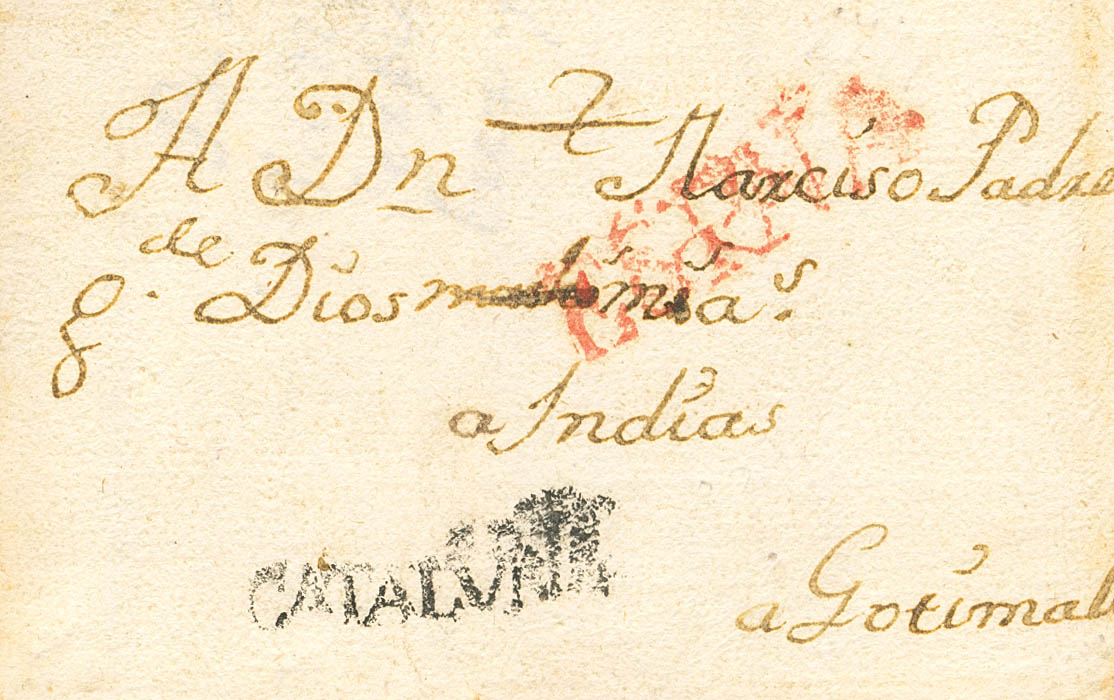 A Dn Narciso Padre
g. de Dios a.s
a Indias
CATALUÑA
a Gotimal